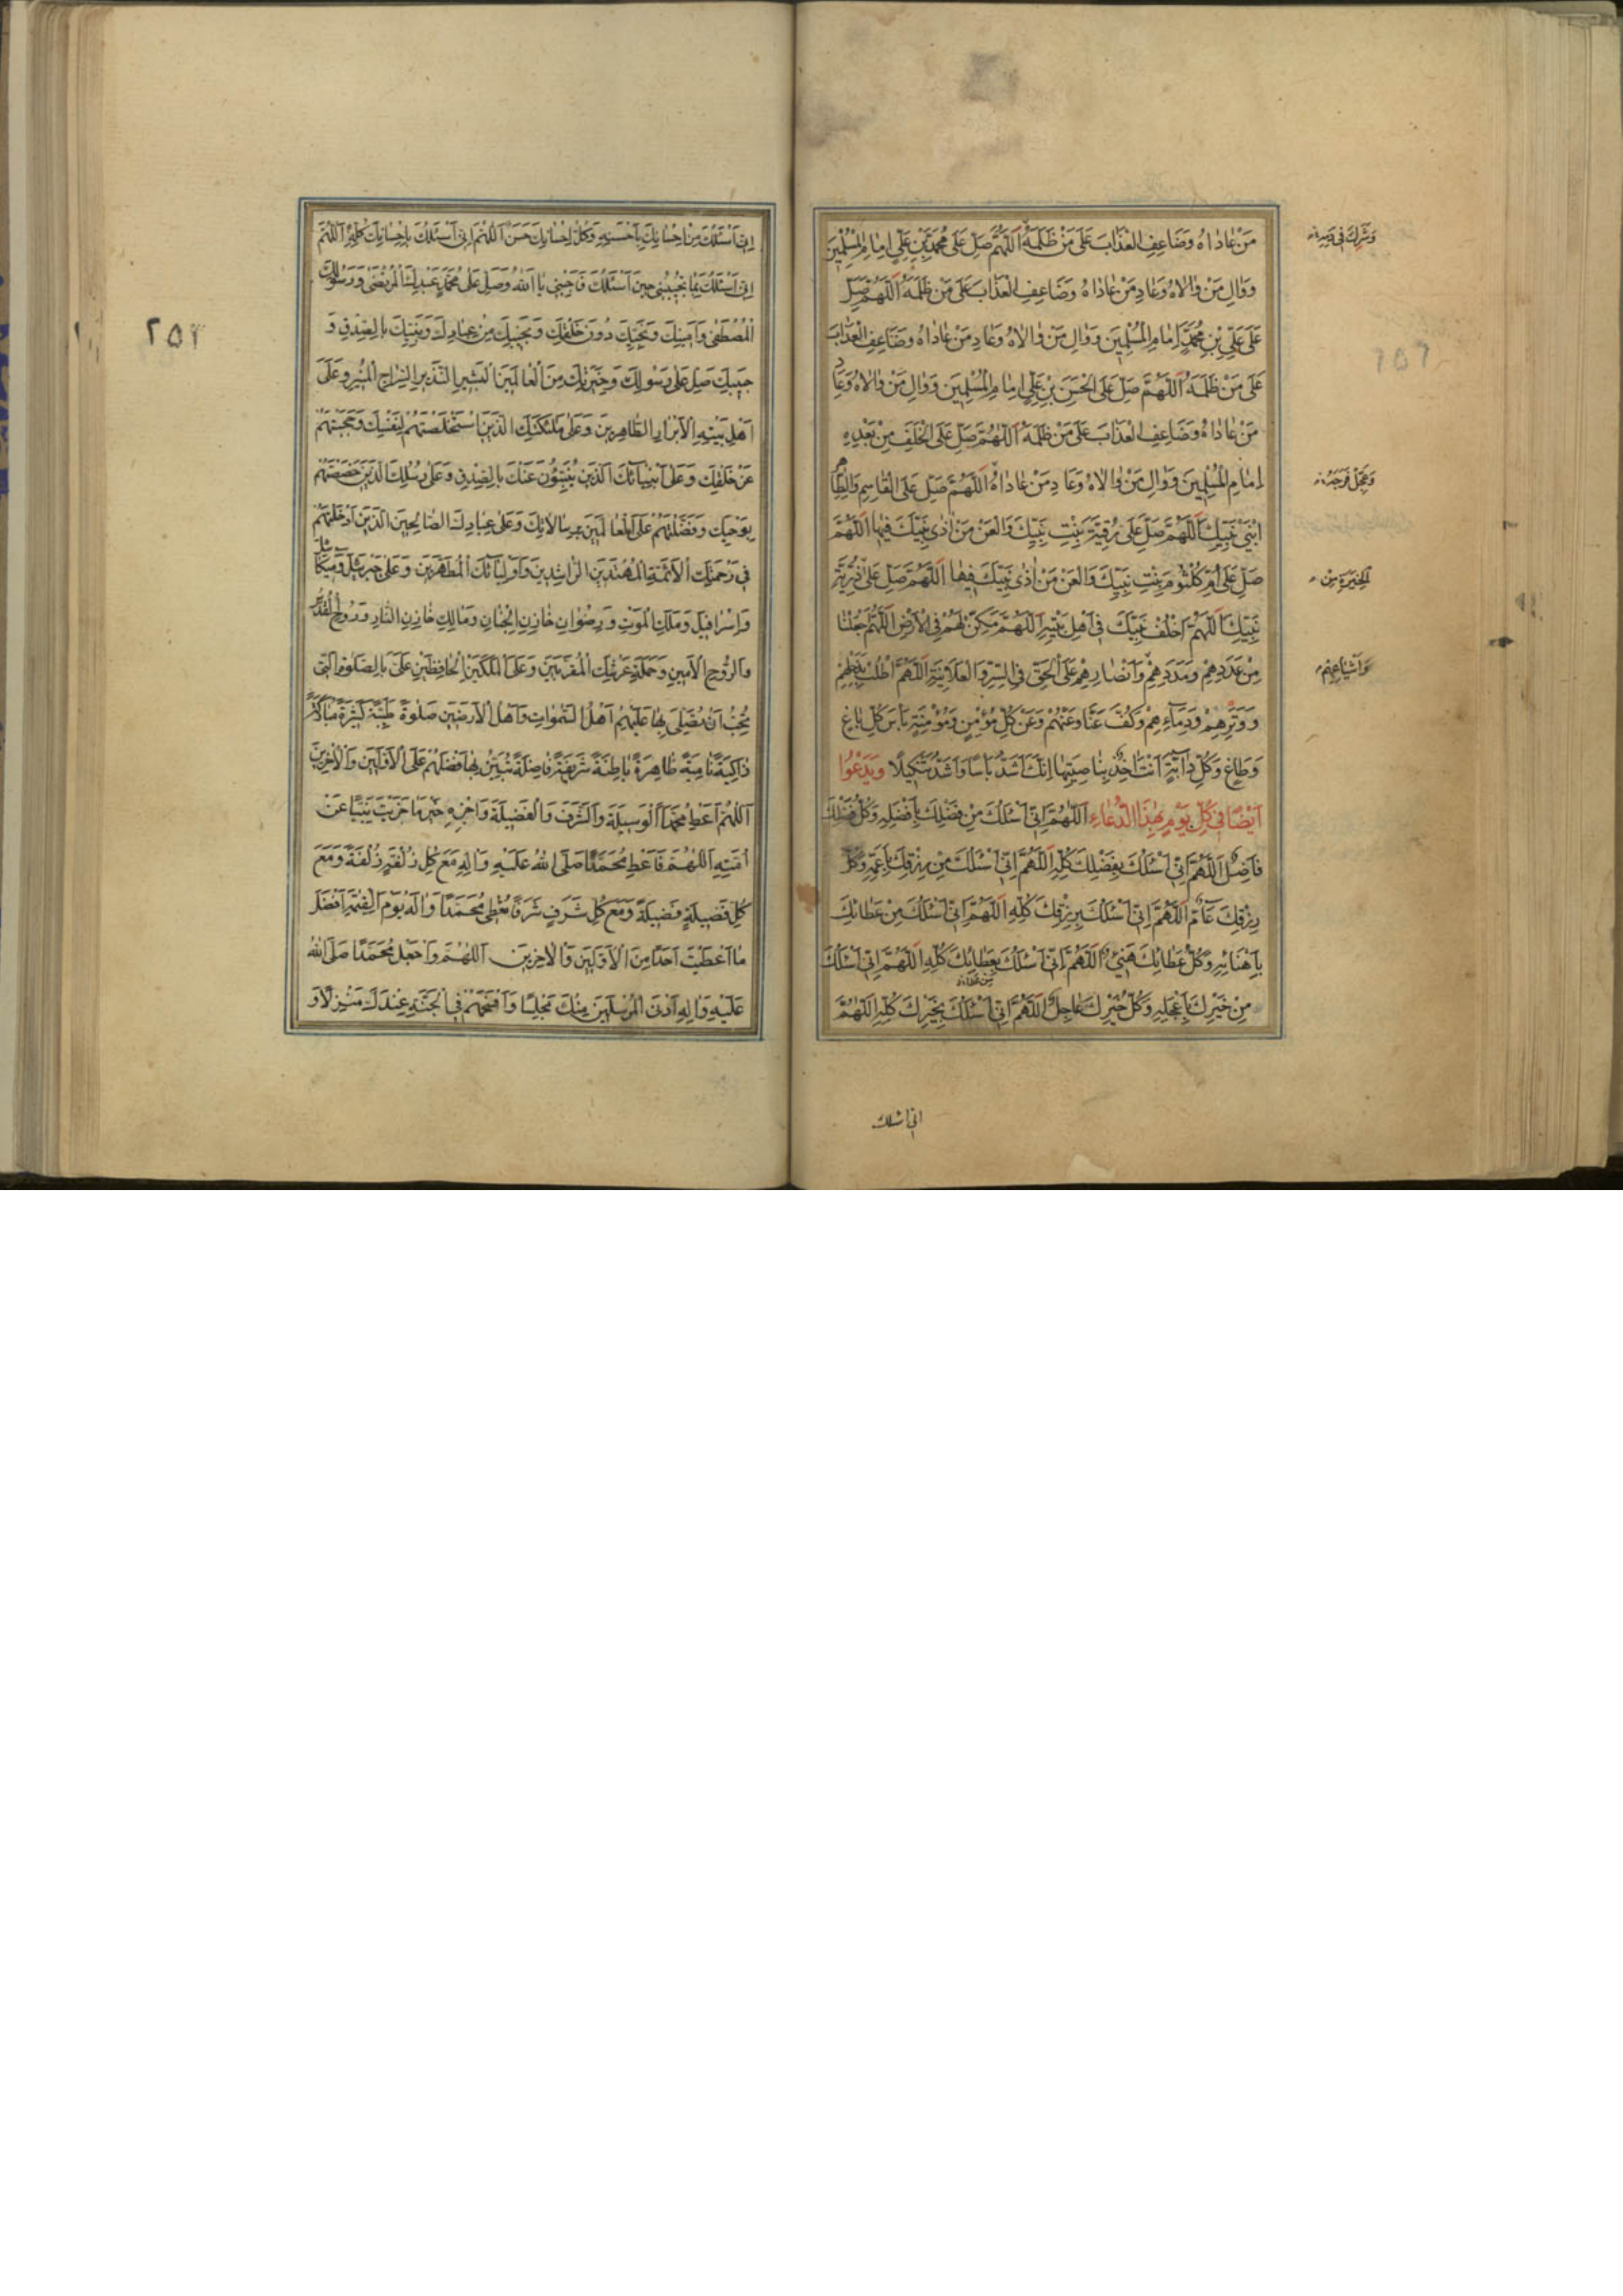 مَنْ عٰاداهُ وَضَاعِفِ الْعَذٰابَ عَلىٰ مَنْ ظَلَمَهُ اَللّٰهُمَّ صَلِّ عَلىٰ مُحَمَّدِ بْنِ عَلِيٍّ اِمٰامِ الْمُسْلِمِينَ
وَشَرِكَ فِي دَمِهِ
وَوٰالِ مَنْ وٰالاهُ وَعٰادِ مَنْ عٰادٰاهُ وَضَاعِفِ الْعَذٰابَ عَلىٰ مَنْ ظَلَمَهُ اَللّٰهُمَّ صَلِّ
عَلىٰ عَلِيِّ بْنِ مُحَمَّدٍ اِمٰامِ الْمُسْلِمِينَ وَوٰالِ مَنْ وٰالاٰهُ وَعٰادِ مَنْ عٰادٰاهُ وَضَاعِفِ الْعَذٰابَ
عَلىٰ مَنْ ظَلَمَهُ اَللّٰهُمَّ صَلِّ عَلَى الْحَسَنِ بْنِ عَلِيٍّ اِمٰامِ الْمُسْلِمِينَ وَوٰالِ مَنْ وٰالاٰهُ وَعٰادِ
مَنْ عٰادٰاهُ وَضَاعِفِ الْعَذٰابَ عَلىٰ مَنْ ظَلَمَهُ اَللّٰهُمَّ صَلِّ عَلَى الْخَلَفِ مِنْ بَعْدِهِ
اِمٰامِ الْمُسْلِمِينَ وَوٰالِ مَنْ وٰالاٰهُ وَعٰادِ مَنْ عٰادٰاهُ اَللّٰهُمَّ صَلِّ عَلَى الْقٰاسِمِ وَالطّٰاهِرِ
وَعَجِّلْ فَرَجَهُ
ابْنَيْ نَبِيِّكَ اَللّٰهُمَّ صَلِّ عَلىٰ رُقَيَّةَ بِنْتِ نَبِيِّكَ وَالْعَنْ مَنْ اٰذٰى نَبِيَّكَ فِيهٰا اَللّٰهُمَّ
صَلِّ عَلىٰ اُمِّ كُلْثُومَ بِنْتِ نَبِيِّكَ وَالْعَنْ مَنْ اٰذٰى نَبِيَّكَ فِيهٰا اَللّٰهُمَّ صَلِّ عَلىٰ ذُرِّيَّةِ
الْخِيَرَةِ مِنْ
نَبِيِّكَ اَللّٰهُمَّ اخْلُفْ نَبِيَّكَ فِي اَهْلِ بَيْتِهِ اَللّٰهُمَّ مَكِّنْ لَهُمْ فِي الْاَرْضِ اَللّٰهُمَّ اجْعَلْنٰا
مِنْ عَدَدِهِمْ وَمَدَدِهِمْ وَاَنْصٰارِهِمْ عَلَى الْحَقِّ فِي السِّرِّ وَالْعَلاٰنِيَةِ اَللّٰهُمَّ اطْلُبْ بِذَحْلِهِمْ
وَاَشْيٰاعِهِمْ
وَوَتْرِهِمْ وَدِمٰاءِهِمْ وَكُفَّ عَنّٰا وَعَنْهُمْ وَعَنْ كُلِّ مُؤْمِنٍ وَمُؤْمِنَةٍ بَأْسَ كُلِّ بٰاغٍ
وَطٰاغٍ وَكُلِّ دٰابَّةٍ اَنْتَ اٰخِذٌ بِنٰاصِيَتِهٰا اِنَّكَ اَشَدُّ بَأْسًا وَاَشَدُّ تَنْكِيلًا وَيَدْعُوا
اَيْضًا فِي كُلِّ يَوْمٍ بِهٰذَا الدُّعٰاءِ اَللّٰهُمَّ اِنِّي اَسْئَلُكَ مِنْ فَضْلِكَ بِاَفْضَلِهِ وَكُلُّ فَضْلِكَ
فٰاضِلٌ اَللّٰهُمَّ اِنِّي اَسْئَلُكَ بِفَضْلِكَ كُلِّهِ اَللّٰهُمَّ اِنِّي اَسْئَلُكَ مِنْ رِزْقِكَ بِاَعَمِّهِ وَكُلُّ
رِزْقِكَ عٰامٌّ اَللّٰهُمَّ اِنِّي اَسْئَلُكَ بِرِزْقِكَ كُلِّهِ اَللّٰهُمَّ اِنِّي اَسْئَلُكَ مِنْ عَطٰائِكَ
بِاَهْنَائِهِ وَكُلُّ عَطٰائِكَ هَنِيءٌ اَللّٰهُمَّ اِنِّي اَسْئَلُكَ بِعَطٰائِكَ كُلِّهِ اَللّٰهُمَّ اِنِّي اَسْئَلُكَ
مِنْ خَيْرِكَ بِاَعْجَلِهِ وَكُلُّ خَيْرِكَ عٰاجِلٌ اَللّٰهُمَّ اِنِّي اَسْئَلُكَ بِخَيْرِكَ كُلِّهِ اَللّٰهُمَّ
انی اسئلك
٢٥٢
اِنِّي اَسْئَلُكَ مِنْ اِحْسٰانِكَ بِاَحْسَنِهِ وَكُلُّ اِحْسٰانِكَ حَسَنٌ اَللّٰهُمَّ اِنِّي اَسْئَلُكَ بِاِحْسٰانِكَ كُلِّهِ اَللّٰهُمَّ
اِنِّي اَسْئَلُكَ بِمٰا تُجِيبُنِي حِينَ اَسْئَلُكَ فَاَجِبْنِي يٰا اَللّٰهُ وَصَلِّ عَلىٰ مُحَمَّدٍ عَبْدِكَ الْمُرْتَضٰى وَرَسُولِكَ
الْمُصْطَفٰى وَاَمِينِكَ وَنَجِيِّكَ دُونَ خَلْقِكَ وَنَجِيبِكَ مِنْ عِبٰادِكَ وَنَبِيِّكَ بِالصِّدْقِ وَ
حَبِيبِكَ صَلِّ عَلىٰ رَسُولِكَ وَخِيَرَتِكَ مِنَ الْعٰالَمِينَ الْبَشِيرِ النَّذِيرِ السِّرٰاجِ الْمُنِيرِ وَعَلىٰ
اَهْلِ بَيْتِهِ الْاَبْرٰارِ الطّٰاهِرِينَ وَعَلىٰ مَلٰئِكَتِكَ الَّذِينَ اسْتَخْلَصْتَهُمْ لِنَفْسِكَ وَحَجَبْتَهُمْ
عَنْ خَلْقِكَ وَعَلىٰ اَنْبِيٰائِكَ الَّذِينَ يُنْبِئُونَ عَنْكَ بِالصِّدْقِ وَعَلىٰ رُسُلِكَ الَّذِينَ خَصَصْتَهُمْ
بِوَحْيِكَ وَفَضَّلْتَهُمْ عَلَى الْعٰالَمِينَ بِرِسٰالاٰتِكَ وَعَلىٰ عِبٰادِكَ الصّٰالِحِينَ الَّذِينَ اَدْخَلْتَهُمْ
فِي رَحْمَتِكَ الْاَئِمَّةِ الْمُهْتَدِينَ الرّٰاشِدِينَ وَاَوْلِيٰائِكَ الْمُطَهَّرِينَ وَعَلىٰ جَبْرَئِيلَ وَمِيكٰائِيلَ
وَاِسْرٰافِيلَ وَمَلَكِ الْمَوْتِ وَرِضْوٰانِ خٰازِنِ الْجِنٰانِ وَمٰالِكٍ خٰازِنِ النّٰارِ وَرُوحِ الْقُدُسِ
وَالرُّوحِ الْاَمِينِ وَحَمَلَةِ عَرْشِكَ الْمُقَرَّبِينَ وَعَلَى الْمَلَكَيْنِ الْحٰافِظَيْنِ عَلَيَّ بِالصَّلٰوةِ الَّتِي
تُحِبُّ اَنْ يُصَلِّيَ بِهٰا عَلَيْهِمْ اَهْلُ السَّمٰوٰاتِ وَاَهْلُ الْاَرَضِينَ صَلٰوةً طَيِّبَةً كَثِيرَةً مُبٰارَكَةً
زٰاكِيَةً نٰامِيَةً ظٰاهِرَةً بٰاطِنَةً شَرِيفَةً فٰاضِلَةً تُبَيِّنُ بِهٰا فَضْلَهُمْ عَلَى الْاَوَّلِينَ وَالْاٰخِرِينَ
اَللّٰهُمَّ اَعْطِ مُحَمَّدًا الْوَسِيلَةَ وَالشَّرَفَ وَالْفَضِيلَةَ وَاجْزِهِ خَيْرَ مٰا جَزَيْتَ نَبِيًّا عَنْ
اُمَّتِهِ اَللّٰهُمَّ فَاَعْطِ مُحَمَّدًا صَلَّى اللّٰهُ عَلَيْهِ وَاٰلِهِ مَعَ كُلِّ زُلْفَةٍ زُلْفَةً وَمَعَ
كُلِّ فَضِيلَةٍ فَضِيلَةً وَمَعَ كُلِّ شَرَفٍ شَرَفًا تُعْطِي مُحَمَّدًا وَاٰلَهُ يَوْمَ الْقِيٰمَةِ اَفْضَلَ
مٰا اَعْطَيْتَ اَحَدًا مِنَ الْاَوَّلِينَ وَالْاٰخِرِينَ اَللّٰهُمَّ وَاجْعَلْ مُحَمَّدًا صَلَّى اللّٰهُ
عَلَيْهِ وَاٰلِهِ اَدْنَى الْمُرْسَلِينَ مِنْكَ مَجْلِسًا وَاَفْسَحَهُمْ فِي الْجَنَّةِ عِنْدَكَ مَنْزِلًا وَ